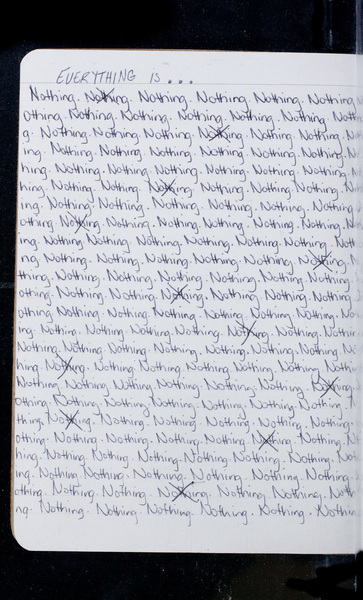 EVERYTHING IS...
Nothing. Nothing. Nothing. Nothing. Nothing. Nothing
othing. Nothing. Nothing. Nothing. Nothing. Nothing. Noth
g. Nothing. Nothing. Nothing. Nothing. Nothing. Nothing. No
ing. Nothing. Nothing. Nothing. Nothing. Nothing. Nothing.
hing. Nothing. Nothing. Nothing. Nothing. Nothing. Nothing. N
hing. Nothing. Nothing. Nothing. Nothing. Nothing. Nothing. No
ing. Nothing. Nothing. Nothing. Nothing. Nothing. Nothing.
othing. Nothing. Nothing. Nothing. Nothing. Nothing. Nothing.
ing. Nothing. Nothing. Nothing. Nothing. Nothing. Nothing. Noth
ng. Nothing. Nothing. Nothing. Nothing. Nothing. Nothing. No
thing. Nothing. Nothing. Nothing. Nothing. Nothing. Nothing
othing. Nothing. Nothing. Nothing. Nothing. Nothing. Nothing
othing. Nothing. Nothing. Nothing. Nothing. Nothing. Nothing. No
ing. Nothing. Nothing. Nothing. Nothing. Nothing. Nothing. Nothin
Nothing. Nothing. Nothing. Nothing. Nothing. Nothing. Nothing. No
hing. Nothing. Nothing. Nothing. Nothing. Nothing. Nothing. Nothing
Nothing. Nothing. Nothing. Nothing. Nothing. Nothing. Nothing.
othing. Nothing. Nothing. Nothing. Nothing. Nothing. Nothing. N
thing. Nothing. Nothing. Nothing. Nothing. Nothing. Nothing.
othing. Nothing. Nothing. Nothing. Nothing. Nothing. Nothing. N
hing. Nothing. Nothing. Nothing. Nothing. Nothing. Nothing. No
ing. Nothing. Nothing. Nothing. Nothing. Nothing. Nothing.
othing. Nothing. Nothing. Nothing. Nothing. Nothing. Noth
ng. Nothing. Nothing. Nothing. Nothing. Nothing. Nothin